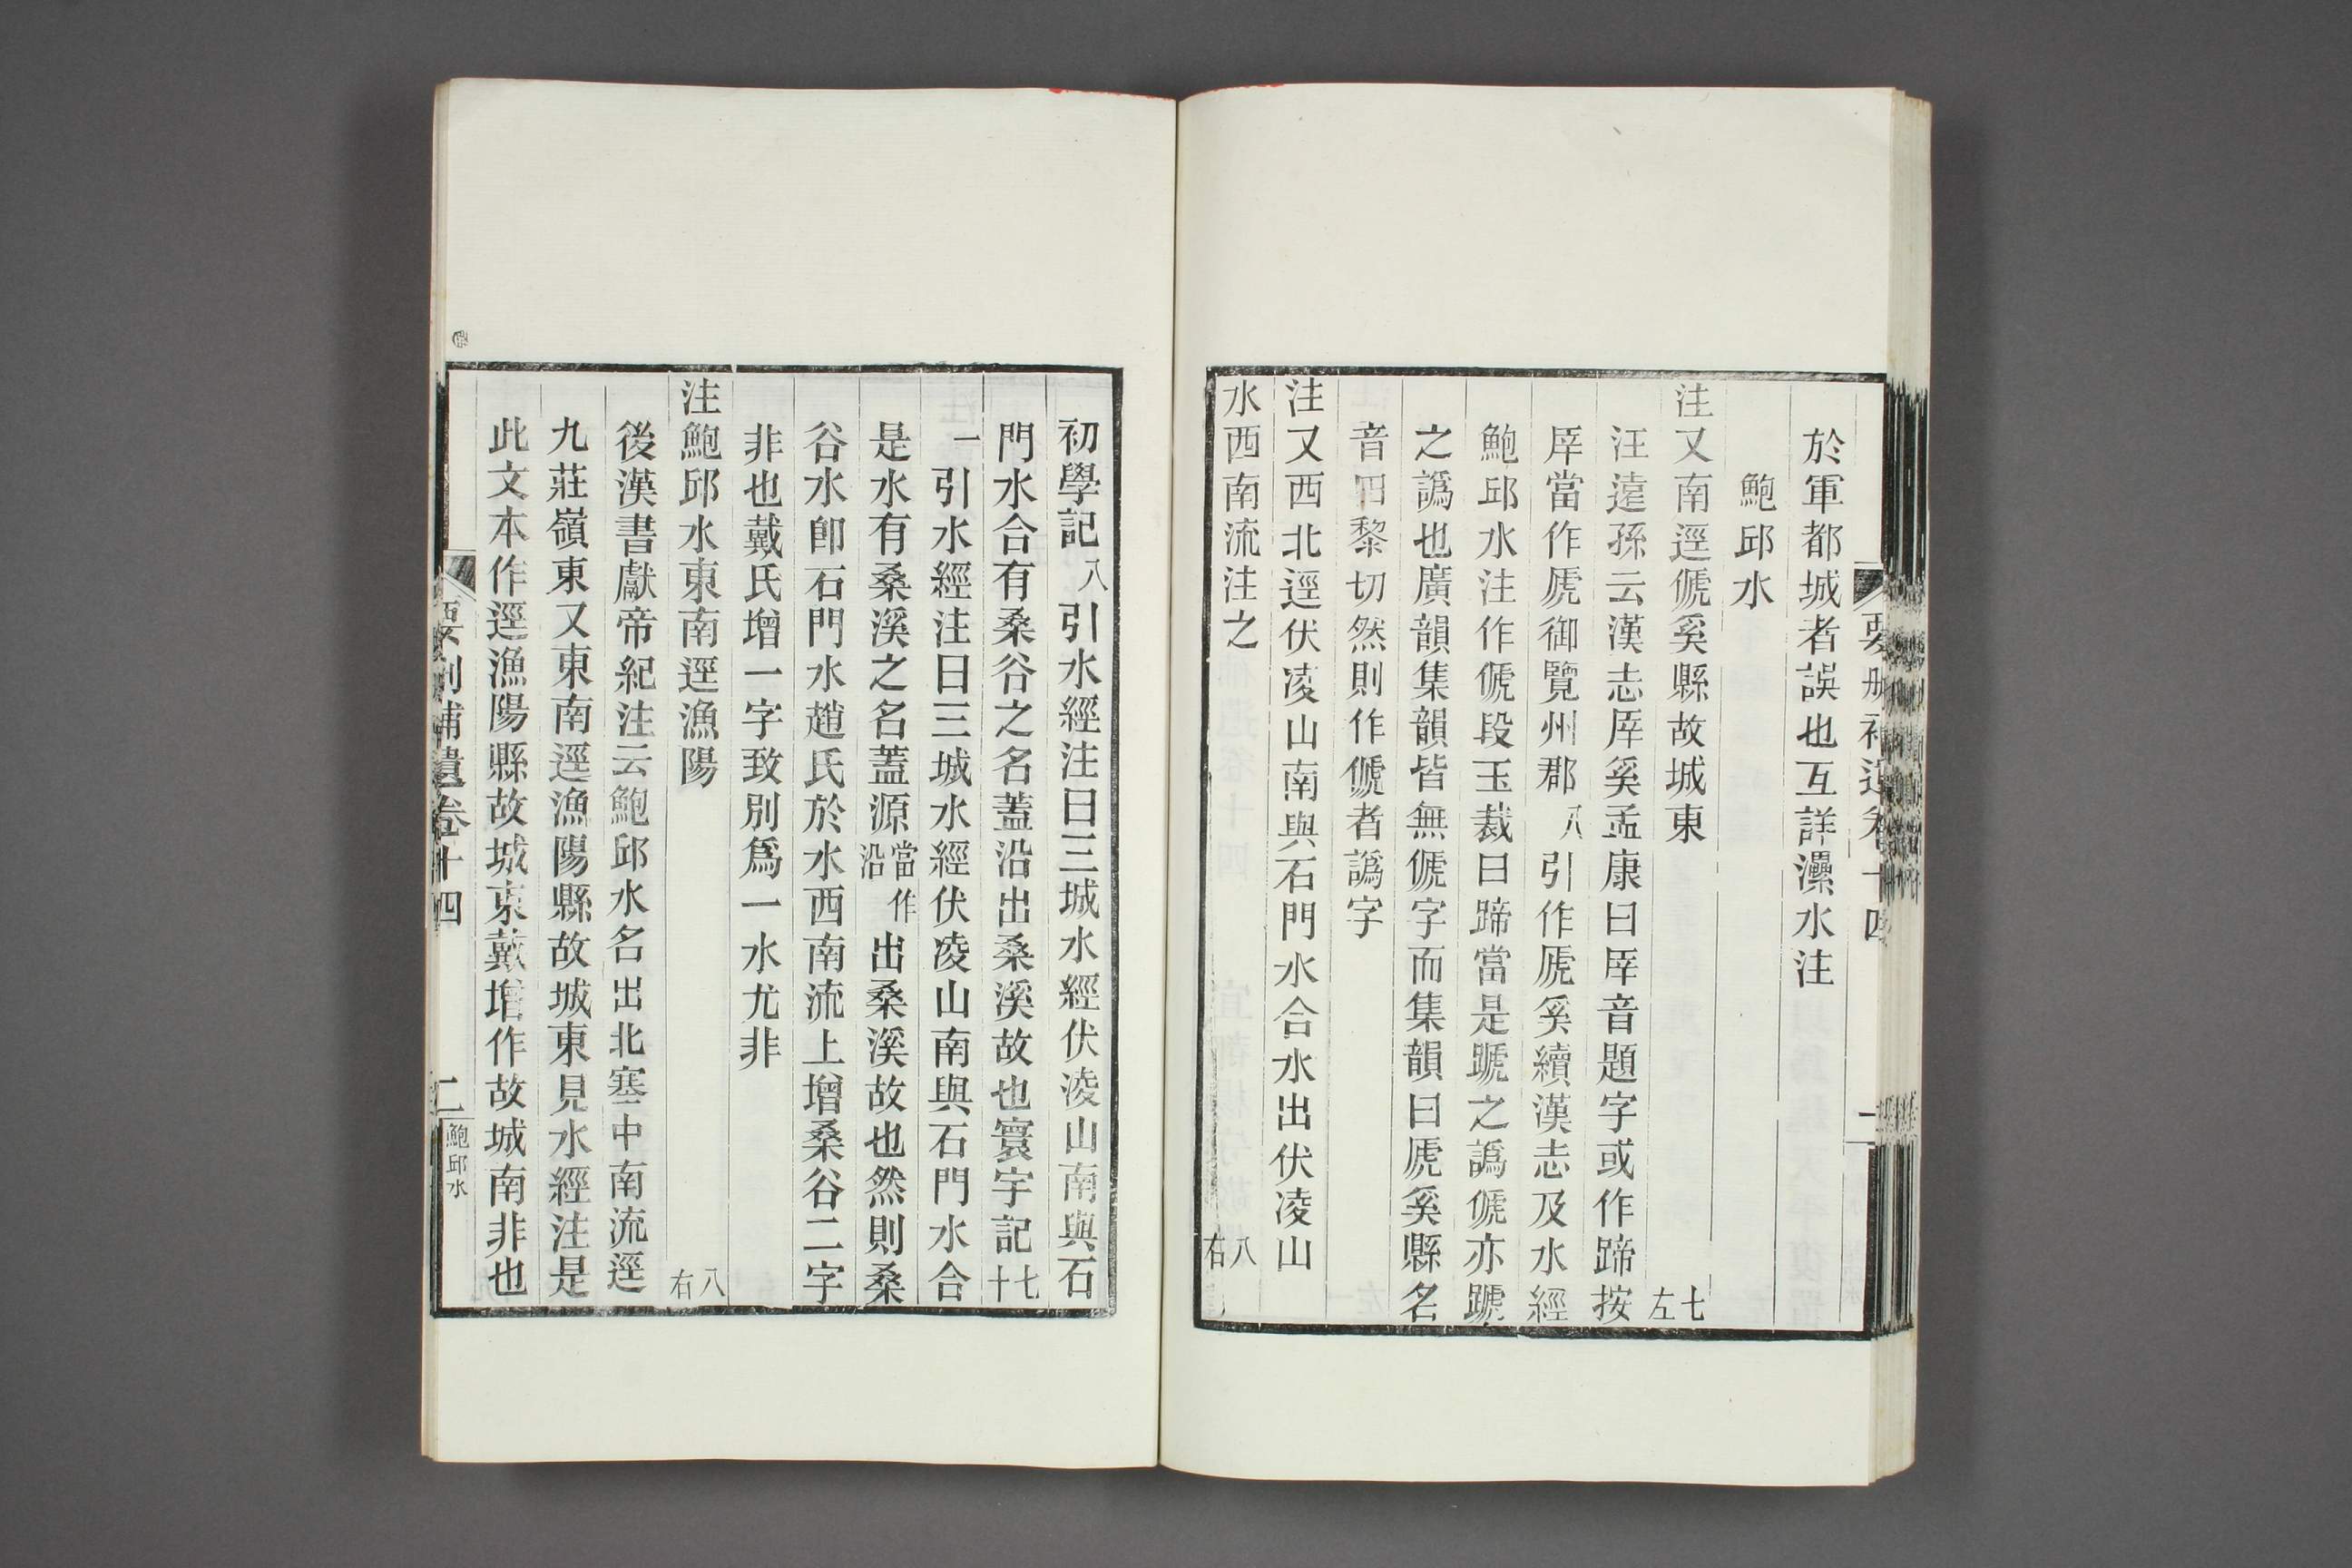 於軍都城者誤也互詳灅水注
鮑邱水
注又南逕傂奚縣故城東 七左
汪遠孫云漢志厗奚孟康曰厗音題字或作蹄按
厗當作虒御覽州郡八引作虒奚續漢志及水經
鮑邱水注作傂段玉裁曰蹄當是蹏之譌傂亦蹏
之譌也廣韻集韻皆無傂字而集韻曰虒奚縣名
音田黎切然則作傂者譌字
注又西北逕伏凌山南與石門水合水出伏凌山
水西南流注之 八右
初學記八引水經注曰三城水經伏淩山南與石
門水合有桑谷之名蓋沿出桑溪故也寰宇記七十
一引水經注曰三城水經伏凌山南與石門水合
是水有桑溪之名蓋源當作沿出桑溪故也然則桑
谷水卽石門水趙氏於水西南流上增桑谷二字
非也戴氏增一字致別爲一水尤非
注鮑邱水東南逕漁陽 八右
後漢書獻帝紀注云鮑邱水名出北塞中南流逕
九莊嶺東又東南逕漁陽縣故城東見水經注是
此文本作逕漁陽縣故城東戴增作故城南非也
要刪補遺卷十四
二
鮑邱水